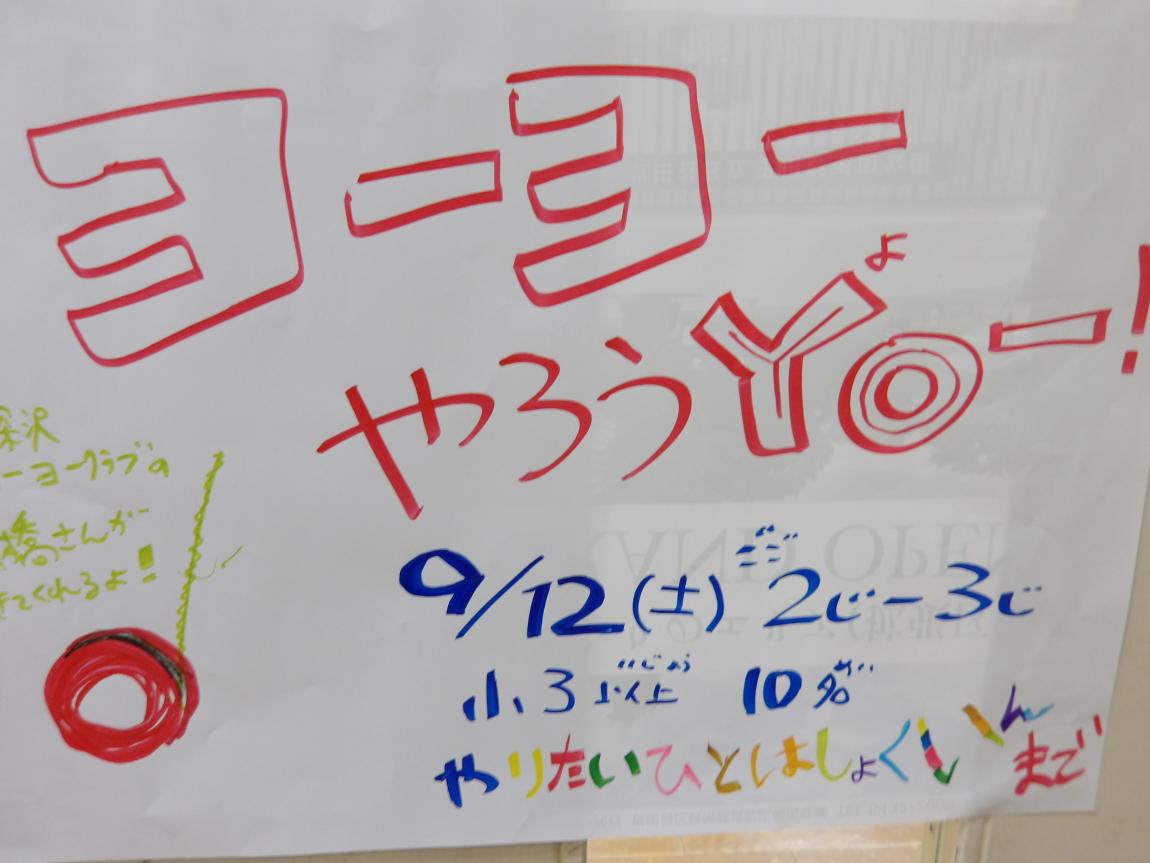 ヨーヨー
やろうYoー!
よ
深沢
ーヨークラブの
橋さんが
てくれるよ!
9/12(土) 2じ-3じ
小3以上 10名
いじょう めい
やりたいひとはしょくいんまで